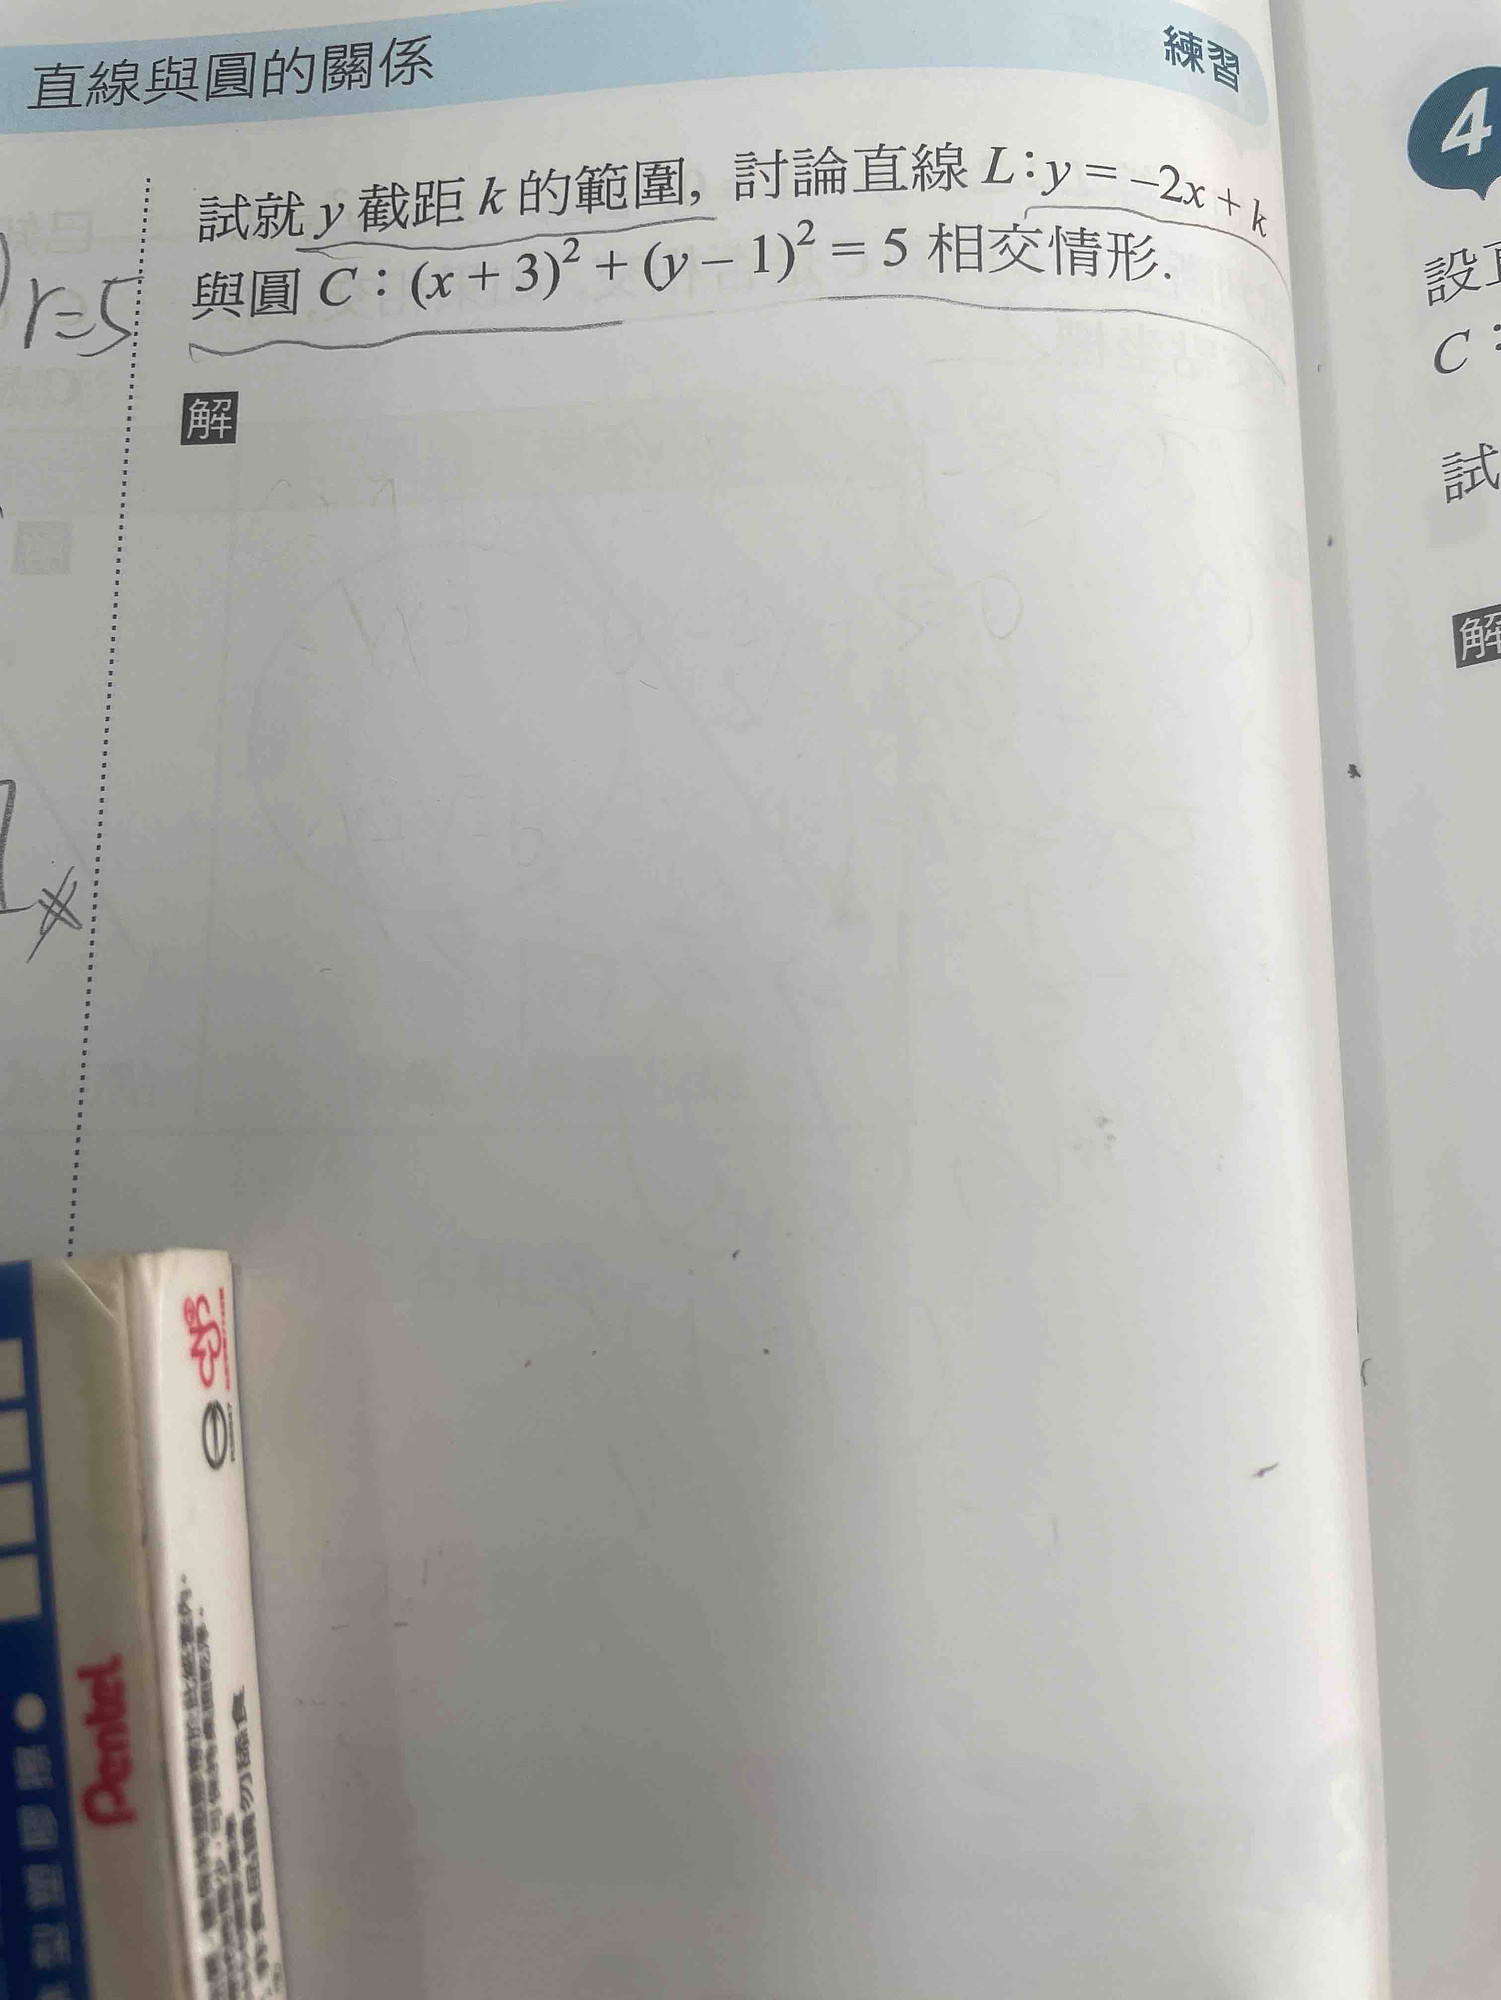 直線與圓的關係
練習
4
試就 y 截距 k 的範圍, 討論直線 L:y = -2x + k
與圓 C：(x + 3)² + (y – 1)² = 5 相交情形.
r=5
解
設
C：
試
解
CNS
Pentel